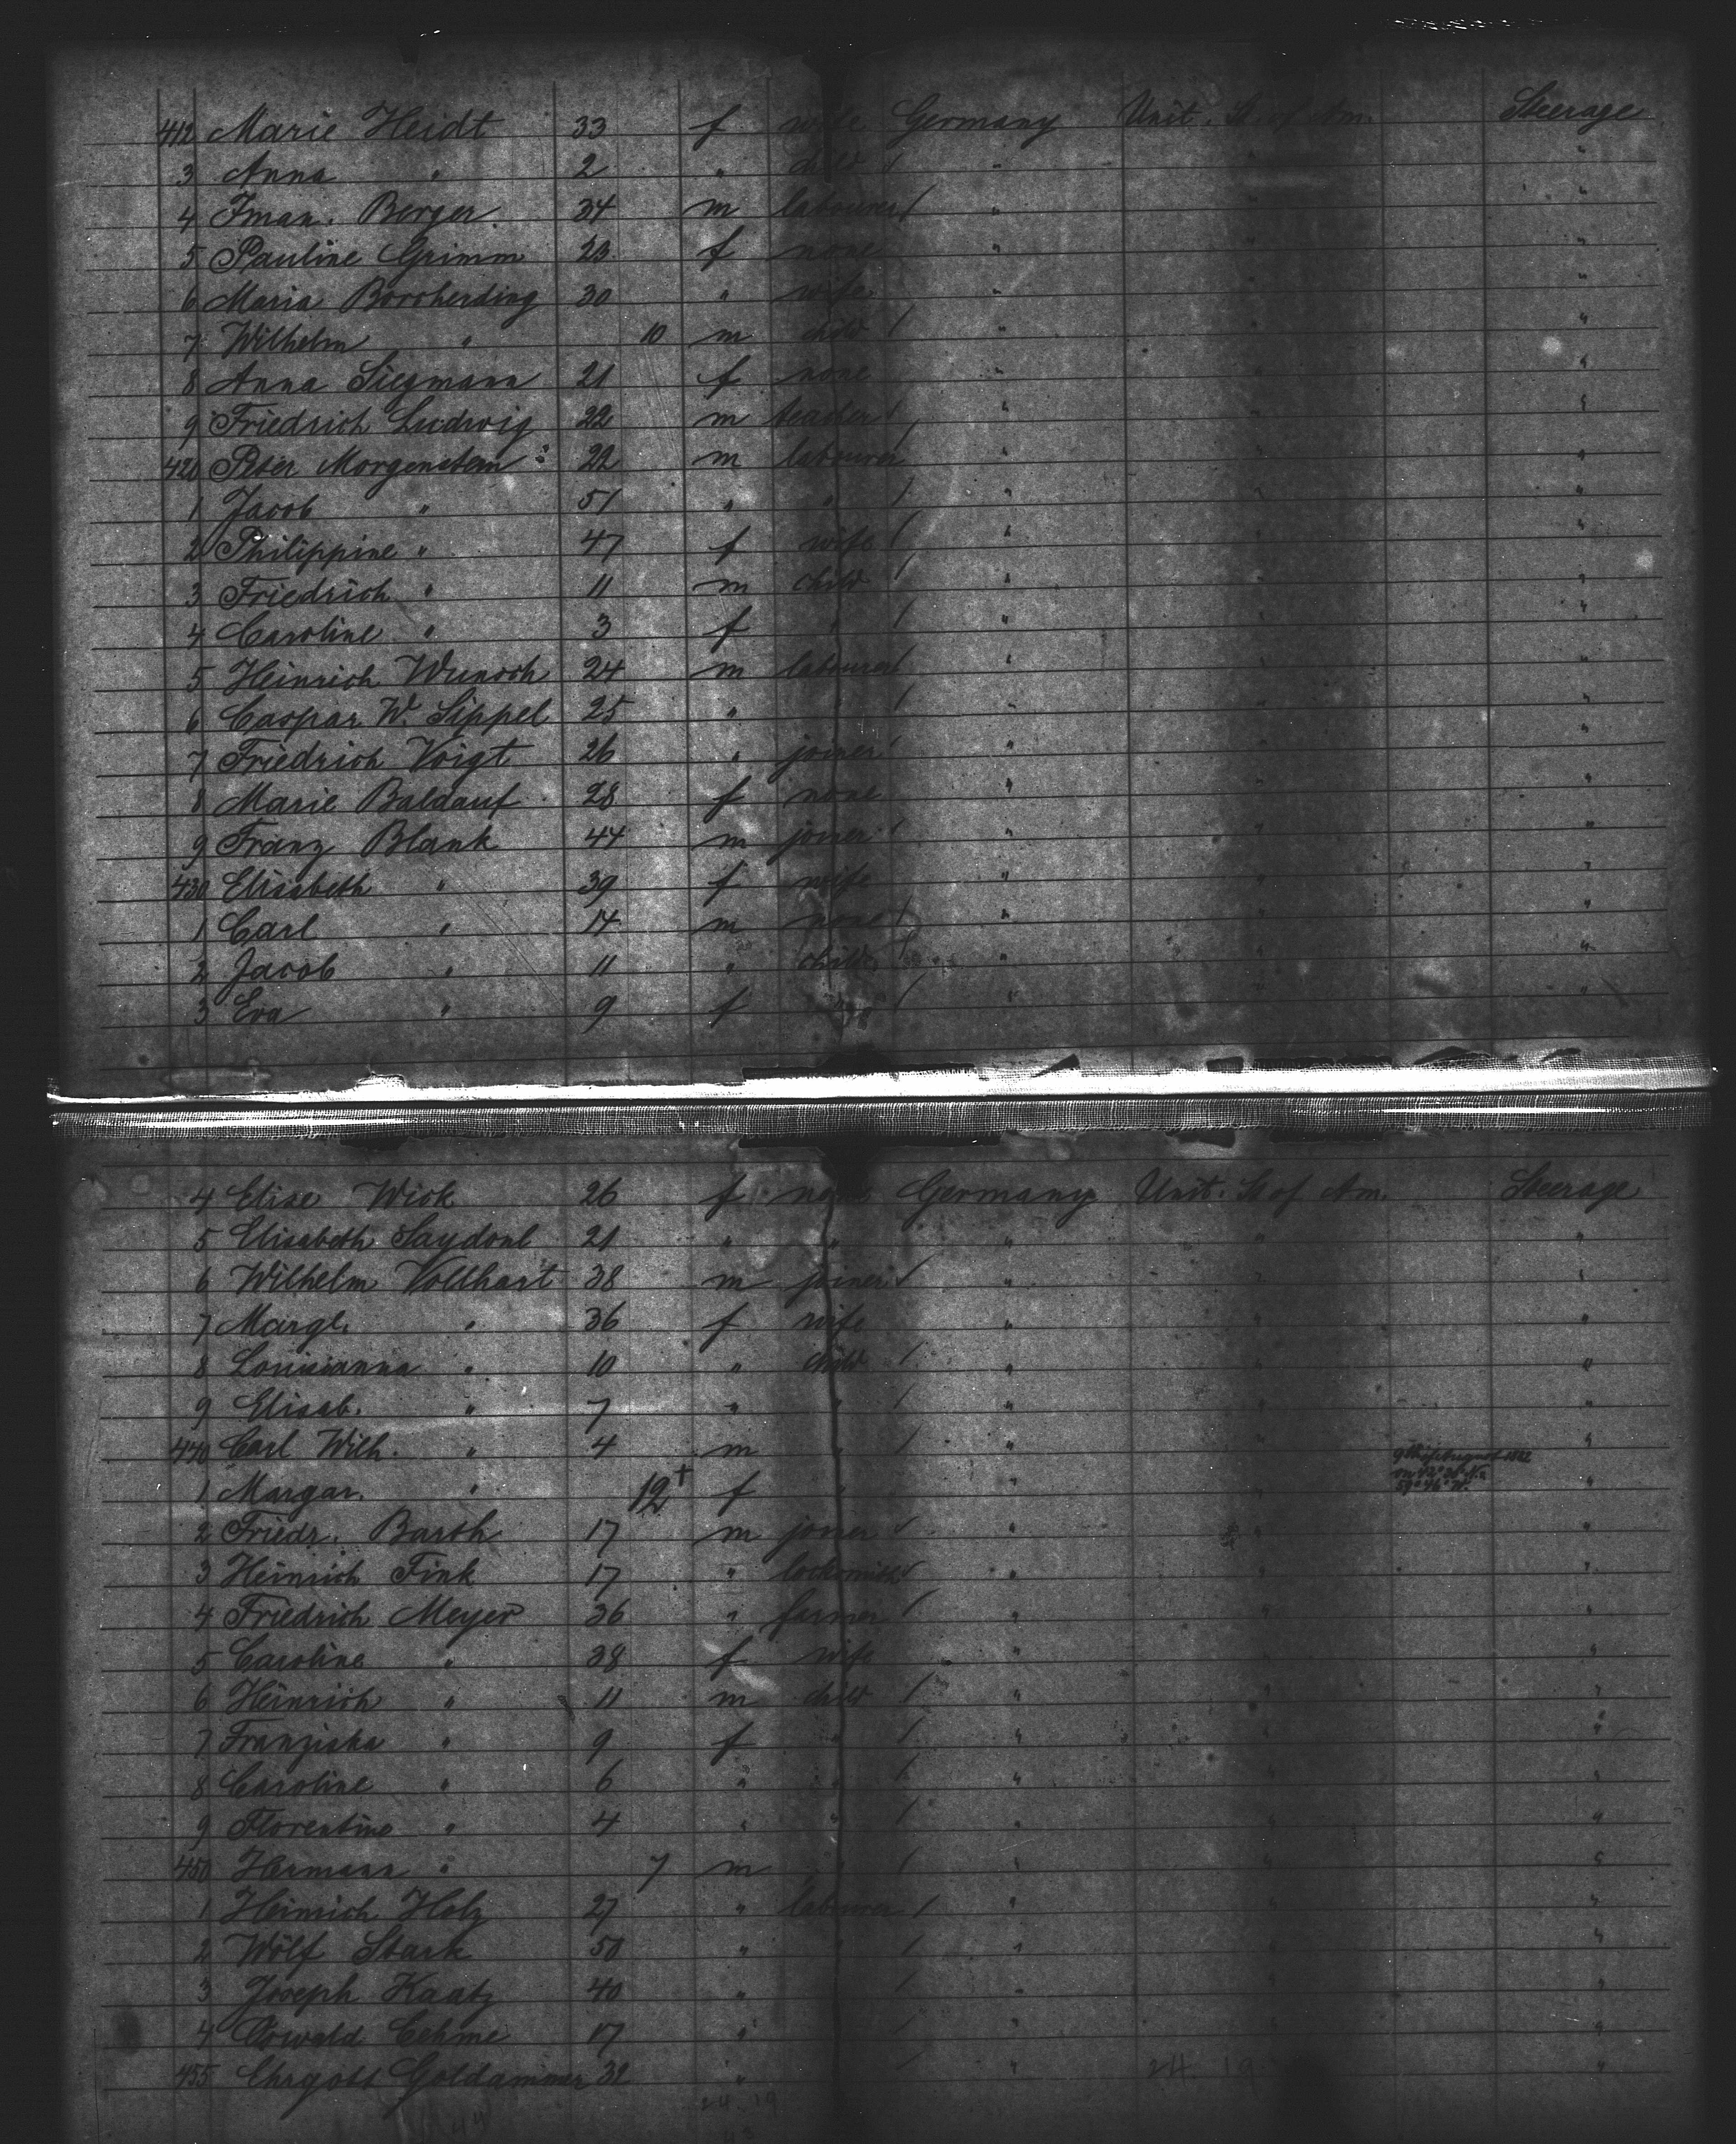 412 Marie Heidt 33 f wife Germany Unit. St. of Am. Steerage
3 Anna " 2 " child / " " "
4 Iman. Berger 34 m labourer / " " "
5 Pauline Grimm 23 f none " " "
6 Maria Borcherding 30 " wife " "
7 Wilhelm " 10 m child / " " "
8 Anna Siegmann 21 f none " " "
9 Friedrich Ludwig 22 m teacher / " " "
420 Peter Morgenstern 22 m labourer / " " "
1 Jacob " 51 " " / " " "
2 Philippine " 47 f wife / " " "
3 Friedrich " 11 m child / " " "
4 Caroline " 3 f " / " " "
5 Heinrich Wunsch 24 m labourer / " " "
6 Caspar W. Sippel 25 " " / " " "
7 Friedrich Voigt 26 " joiner / " " "
8 Marie Baldauf 28 f none " " "
9 Franz Blank 44 m joiner / " " "
430 Elisabeth " 39 f wife " " "
1 Carl " 14 m none / " " "
2 Jacob " 11 " child / " " "
3 Eva " 9 f " / " " "
4 Elise Wick 26 f none Germany Unit. St. of Am. Steerage
5 Elisabeth 21 " " " " "
6 Wilhelm Vollhart 38 m joiner / " " "
7 Margt. " 36 f wife " " "
8 Louisianna " 10 " child / " " "
9 Elisab. " 7 " " / " " "
440 Carl Wilh. " 4 m " / " " "
1 Margar. " 12 + f " " " 9th of August 1882 "
2 Friedr. Barth 17 m joiner / " " "
3 Heinrich Fink 17 " locksmith / " " "
4 Friedrich Meyer 36 " farmer / " " "
5 Caroline " 38 f wife " " "
6 Heinrich " 11 m child / " " "
7 Franziska " 9 f " / " " "
8 Caroline " 6 " " / " " "
9 Florentine " 4 " " / " " "
450 Hermann " 7 m " / " " "
1 Heinrich Holz 27 " labourer / " " "
2 Wolf Stark 50 " " / " " "
3 Joseph Kaatz 40 " / " " "
4 Oswald Oehme 17 " / " " "
455 Ehrgott Goldammer 32 " / " 24.19 "
24.19